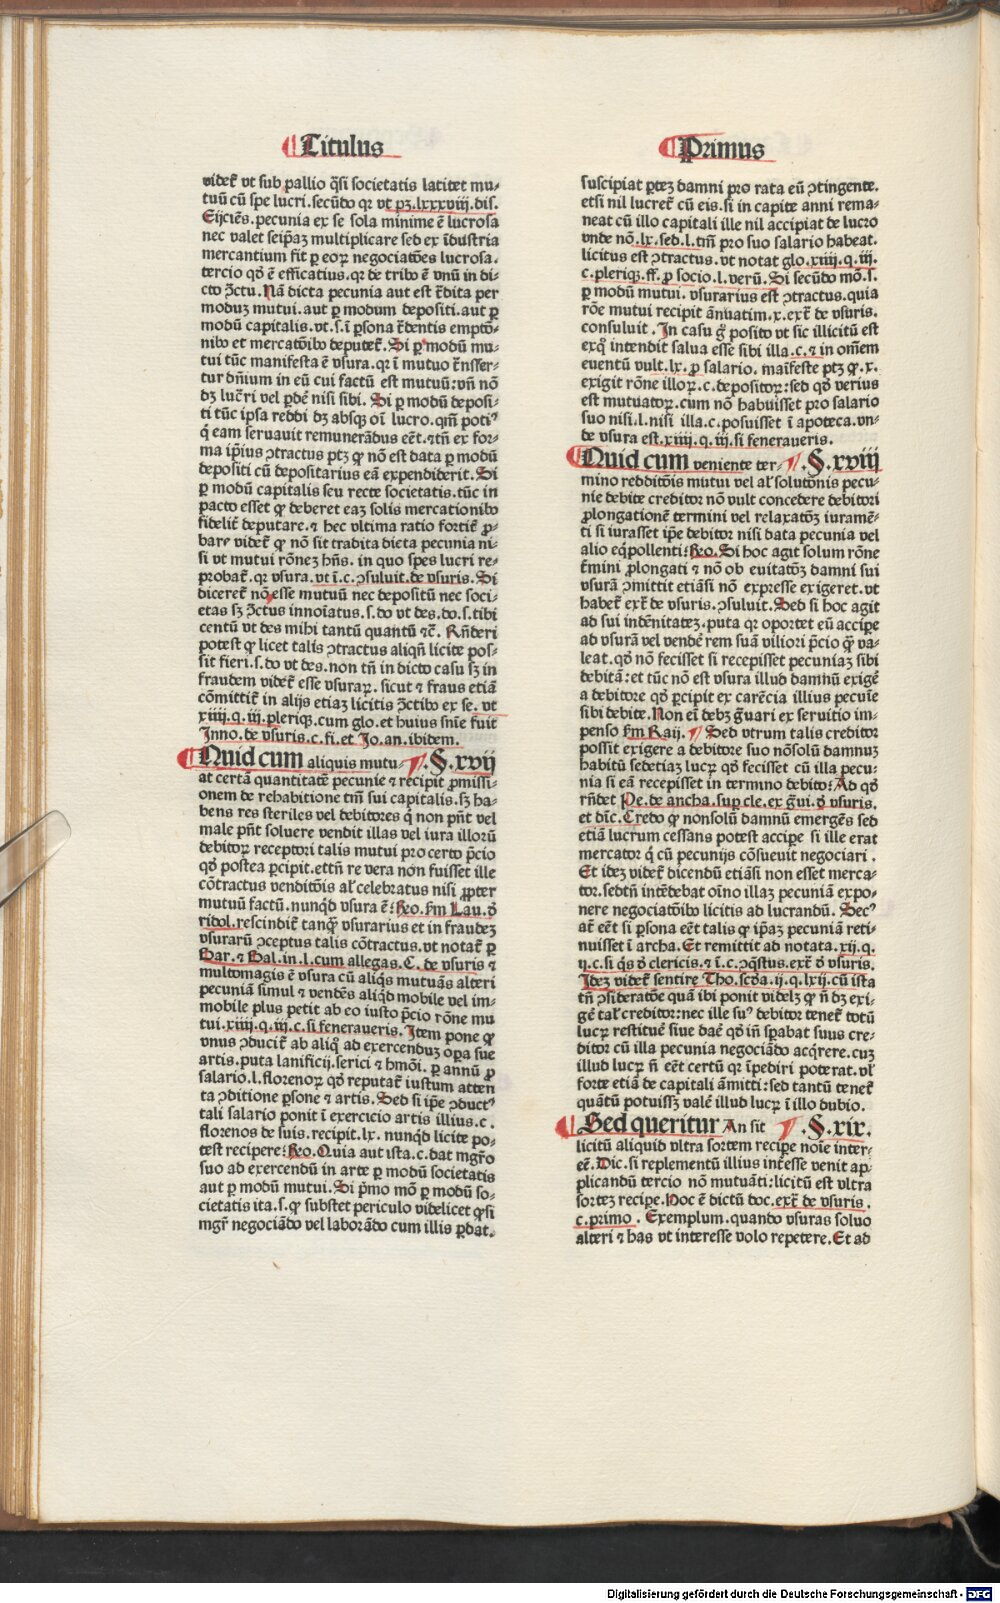 Titulus
videt᷑ vt sub pallio q̃si societatis latitet mu-
tuũ cũ spe lucri. secũdo qr vt pꝫ. lxxxviij. dis.
Eijciẽs. pecunia ex se sola minime ẽ lucrosa
nec valet seip̃aꝫ multiplicare sed ex ĩdustria
mercantium fit ꝑ eoꝝ negociatõẽs lucrosa.
tercio qꝺ ẽ efficatius. qr de tribꝰ ẽ vnũ in di-
cto ↄ̃ctu. Nã dicta pecunia aut est t᷑dita per
moduꝫ mutui. aut ꝑ modum depositi. aut ꝑ
modũ capitalis. vt. s. ĩ ꝑsona t᷑dentis emptõ-
nibꝰ et mercatõibꝰ deputet᷑. Si ꝑ modũ mu-
tui tũc manifesta ẽ vsura. qr ĩ mutuo t᷑nsfer-
tur dñium in eũ cui factũ est mutuũ: vñ nõ
dꝫ luc᷑ri vel ꝑdẽ nisi sibi. Si ꝑ modũ deposi-
ti tũc ipsa reddi dꝫ absqꝫ oĩ lucro. qm̃ poti᷒
q̇ eam seruauit remunerãdus eẽt. ⁊tñ ex for-
ma ip̃ius ↄtractus ptꝫ ꝙ nõ est data ꝑ modũ
depositi cũ depositarius eã expendiderit. Si
ꝑ modũ capitalis seu recte societatis. tũc in
pacto esset ꝙ deberet eaꝫ solis mercationibꝰ
fidelit᷑ deputare. ⁊ hec vltima ratio fortit᷑ ꝓ-
bare videt᷑ ꝙ nõ sit tradita dicta pecunia ni-
si vt mutui rõneꝫ hñs. in quo spes lucri re-
probat᷑. qr vsura. vt ĩ. c. ↄsuluit. de vsuris. Si
diceret᷑ nõ esse mutuũ nec depositũ nec soci-
etas sꝫ ↄ̃ctus innoĩatus. s. do vt des. do. s. tibi
centũ vt des mihi tantũ quantũ ⁊c̃. Rñderi
potest ꝙ licet talis ↄtractus aliqñ licite pos-
sit fieri. s. do vt des. non tñ in dicto casu sꝫ in
fraudem videt᷑ esse vsuraꝝ. sicut ⁊ fraus etiã
cõmittit᷑ in alijs etiaꝫ licitis ↄ̃ctibꝰ ex se. vt
xiiij. q. iij. pleriqꝫ. cum glo. et huius snĩe fuit
Inno. de vsuris. c. fi. et Jo. an. ibidem.
Quid cum aliquis mutu- ¶. §. xvij
at certã quantitatẽ pecunie ⁊ recipit ꝓmissi-
onem de rehabitione tm̃ sui capitalis. sꝫ ha-
bens res steriles vel debitores q̇ non pñt vel
male pñt soluere vendit illas vel iura illorũ
debitoꝝ receptori talis mutui pro certo p̃cio
qꝺ postea ꝑcipit. ettñ re vera non fuisset ille
cõtractus venditõis al᷑ celebratus nisi ꝓpter
mutuũ factũ. nunqͥd vsura ẽ: Reo. ẜm Lau. ꝺ̃
ridol. rescindit᷑ tanqͣꝫ vsurarius et in fraudeꝫ
vsurarũ ↄceptus talis cõtractus. vt notat᷑ ꝑ
Bar. ⁊ Bal. in. l. cum allegas. C. de vsuris ⁊
multomagis ẽ vsura cũ aliqͥs mutuãs alteri
pecuniã simul ⁊ vendẽs aliqͥd mobile vel im-
mobile plus petit ab eo iusto p̃cio rõne mu
tui. xiiij. q. iij. c. si feneraueris. Item pone ꝙ
vnus ↄducit᷑ ab aliq̊ ad exercenduꝫ oꝑa sue
artis. puta lanificij. serici ⁊ hmõi. ꝑ annũ ꝓ
salario. l. florenoꝝ qꝺ reputat᷑ iustum atten
ta ↄditione ꝑsone ⁊ artis. Sed si ip̃e ↄduct᷒
tali salario ponit ĩ exercicio artis illius. c.
florenos de suis. recipit. lx. nunqͥd licite po-
test recipere: Reo. Quia aut ista. c. dat mgr̃o
suo ad exercendũ in arte ꝑ modũ societatis
aut ꝑ modũ mutui. Si p̃mo mõ ꝑ modũ so-
cietatis ita. s. ꝙ substet periculo videlicet ꝙ si
mgr̃ negociãdo vel laborãdo cum illis ꝑdat.
Primus
suscipiat ꝑteꝫ damni pro rata eũ ↄtingente.
etsi nil lucret᷑ cũ eis. si in capite anni rema-
neat cũ illo capitali ille nil accipiat de lucro
vnde nõ. lx. sed. l. tm̃ pro suo salario habeat.
licitus est ↄtractus. vt notat glo. xiiij. q. iij.
c. pleriqꝫ. ff. ꝓ socio. l. verũ. Si secũdo mõ. s.
ꝑ modũ mutui. vsurarius est ↄtractus. quia
rõe mutui recipit ãnuatim. x. ext᷑ de vsuris.
consuluit. In casu g̊ posito vt sic illicitũ est
exq̊ intendit salua esse sibi illa. c. ⁊ in om̃em
euentũ vult. lx. ꝓ salario. maĩfeste ptꝫ ꝙ. x.
exigit rõne illoꝝ. c. depositoꝝ: sed qꝺ verius
est mutuatoꝝ. cum nõ habuisset pro salario
suo nisi. l. nisi illa. c. posuisset ĩ apoteca. vn-
de vsura est. xiiij. q. iij. si feneraueris.
Quid cum veniente ter- ¶. §. xviij
mino redditõis mutui vel al᷑ solutõnis pecu-
nie debite creditor nõ vult concedere debitori
ꝓlongationẽ termini vel relaxatõꝫ iuramẽ-
ti si iurasset ip̃e debitor nisi data pecunia vel
alio eq̇pollenti: Reo. Si hoc agit solum rõne
t᷑mini ꝓlongati ⁊ nõ ob euitatõꝫ damni sui
vsurã ↄmittit etiãsi nõ expresse exigeret. vt
habet᷑ ext᷑ de vsuris. ↄsuluit. Sed si hoc agit
ad sui indẽnitateꝫ. puta qr oportet eũ accipe
ad vsurã vel vendẽ rem suã viliori p̃cio qͣꝫ va-
leat. qꝺ nõ fecisset si recepisset pecuniaꝫ sibi
debitã: et tũc nõ est vsura illud damnũ exigẽ
a debitore qꝺ ꝑcipit ex carẽcia illius pecuĩe
sibi debite. Non eĩ debꝫ g̃uari ex seruitio im-
penso ẜm Raij. ¶ Sed vtrum talis creditor
possit exigere a debitore suo nõsolũ damnuꝫ
habitũ sedetiaꝫ lucꝝ qꝺ fecisset cũ illa pecu-
nia si eã recepisset in termino debito: Ad qꝺ
rñdet Pe. de ancha. suꝑ cle. ex g̃ui. ꝺ̃ vsuris.
et dic̃. Credo ꝙ nonsolũ damnũ emergẽs sed
etiã lucrum cessans potest accipe si ille erat
mercator q̇ cũ pecunijs cõsueuit negociari.
Et ideꝫ videt᷑ dicendũ etiãsi non esset merca-
tor. sedtñ intẽdebat oĩno illaꝫ pecuniã expo-
nere negociatõibꝰ licitis ad lucrandũ. Sec᷒
at᷑ eẽt si ꝑsona eẽt talis ꝙ ip̃aꝫ pecuniã reti-
nuisset ĩ archa. Et remittit ad notata. xij. q.
ij. c. si q̇s ꝺ̃ clericis. ⁊ ĩ. c. ↄq̃stus. ext᷑ ꝺ̃ vsuris.
Ideꝫ videt᷑ sentire Tho. scꝺ̃a. ij. q. lxij. cũ ista
tñ ↄsideratõe quã ibi ponit videlꝫ ꝙ ñ dꝫ exi-
gẽ tal᷑ creditor: nec ille su᷒ debitor tenet᷑ totũ
lucꝝ restituẽ siue daẽ qꝺ iñ sꝑabat suus cre-
ditor cũ illa pecunia negociãdo acq̇rere. cuꝫ
illud lucꝝ ñ eẽt certũ qr ĩpediri poterat. vl᷑
forte etiã de capitali ãmitti: sed tantũ tenet᷑
quãtũ potuissꝫ valẽ illud lucꝝ ĩ illo dubio.
Sed queritur An sit ¶. §. xix.
licitũ aliquid vltra sortem recipe noĩe inter-
eẽ. Dic. si replementũ illius int᷑esse venit ap-
plicandũ tercio nõ mutuãti: licitũ est vltra
sorteꝫ recipe. Hoc ẽ dictũ doc. ext᷑ de vsuris.
c. primo. Exemplum. quando vsuras soluo
alteri ⁊ has vt interesse volo repetere. Et ad
Digitalisierung gefördert durch die Deutsche Forschungsgemeinschaft - DFG